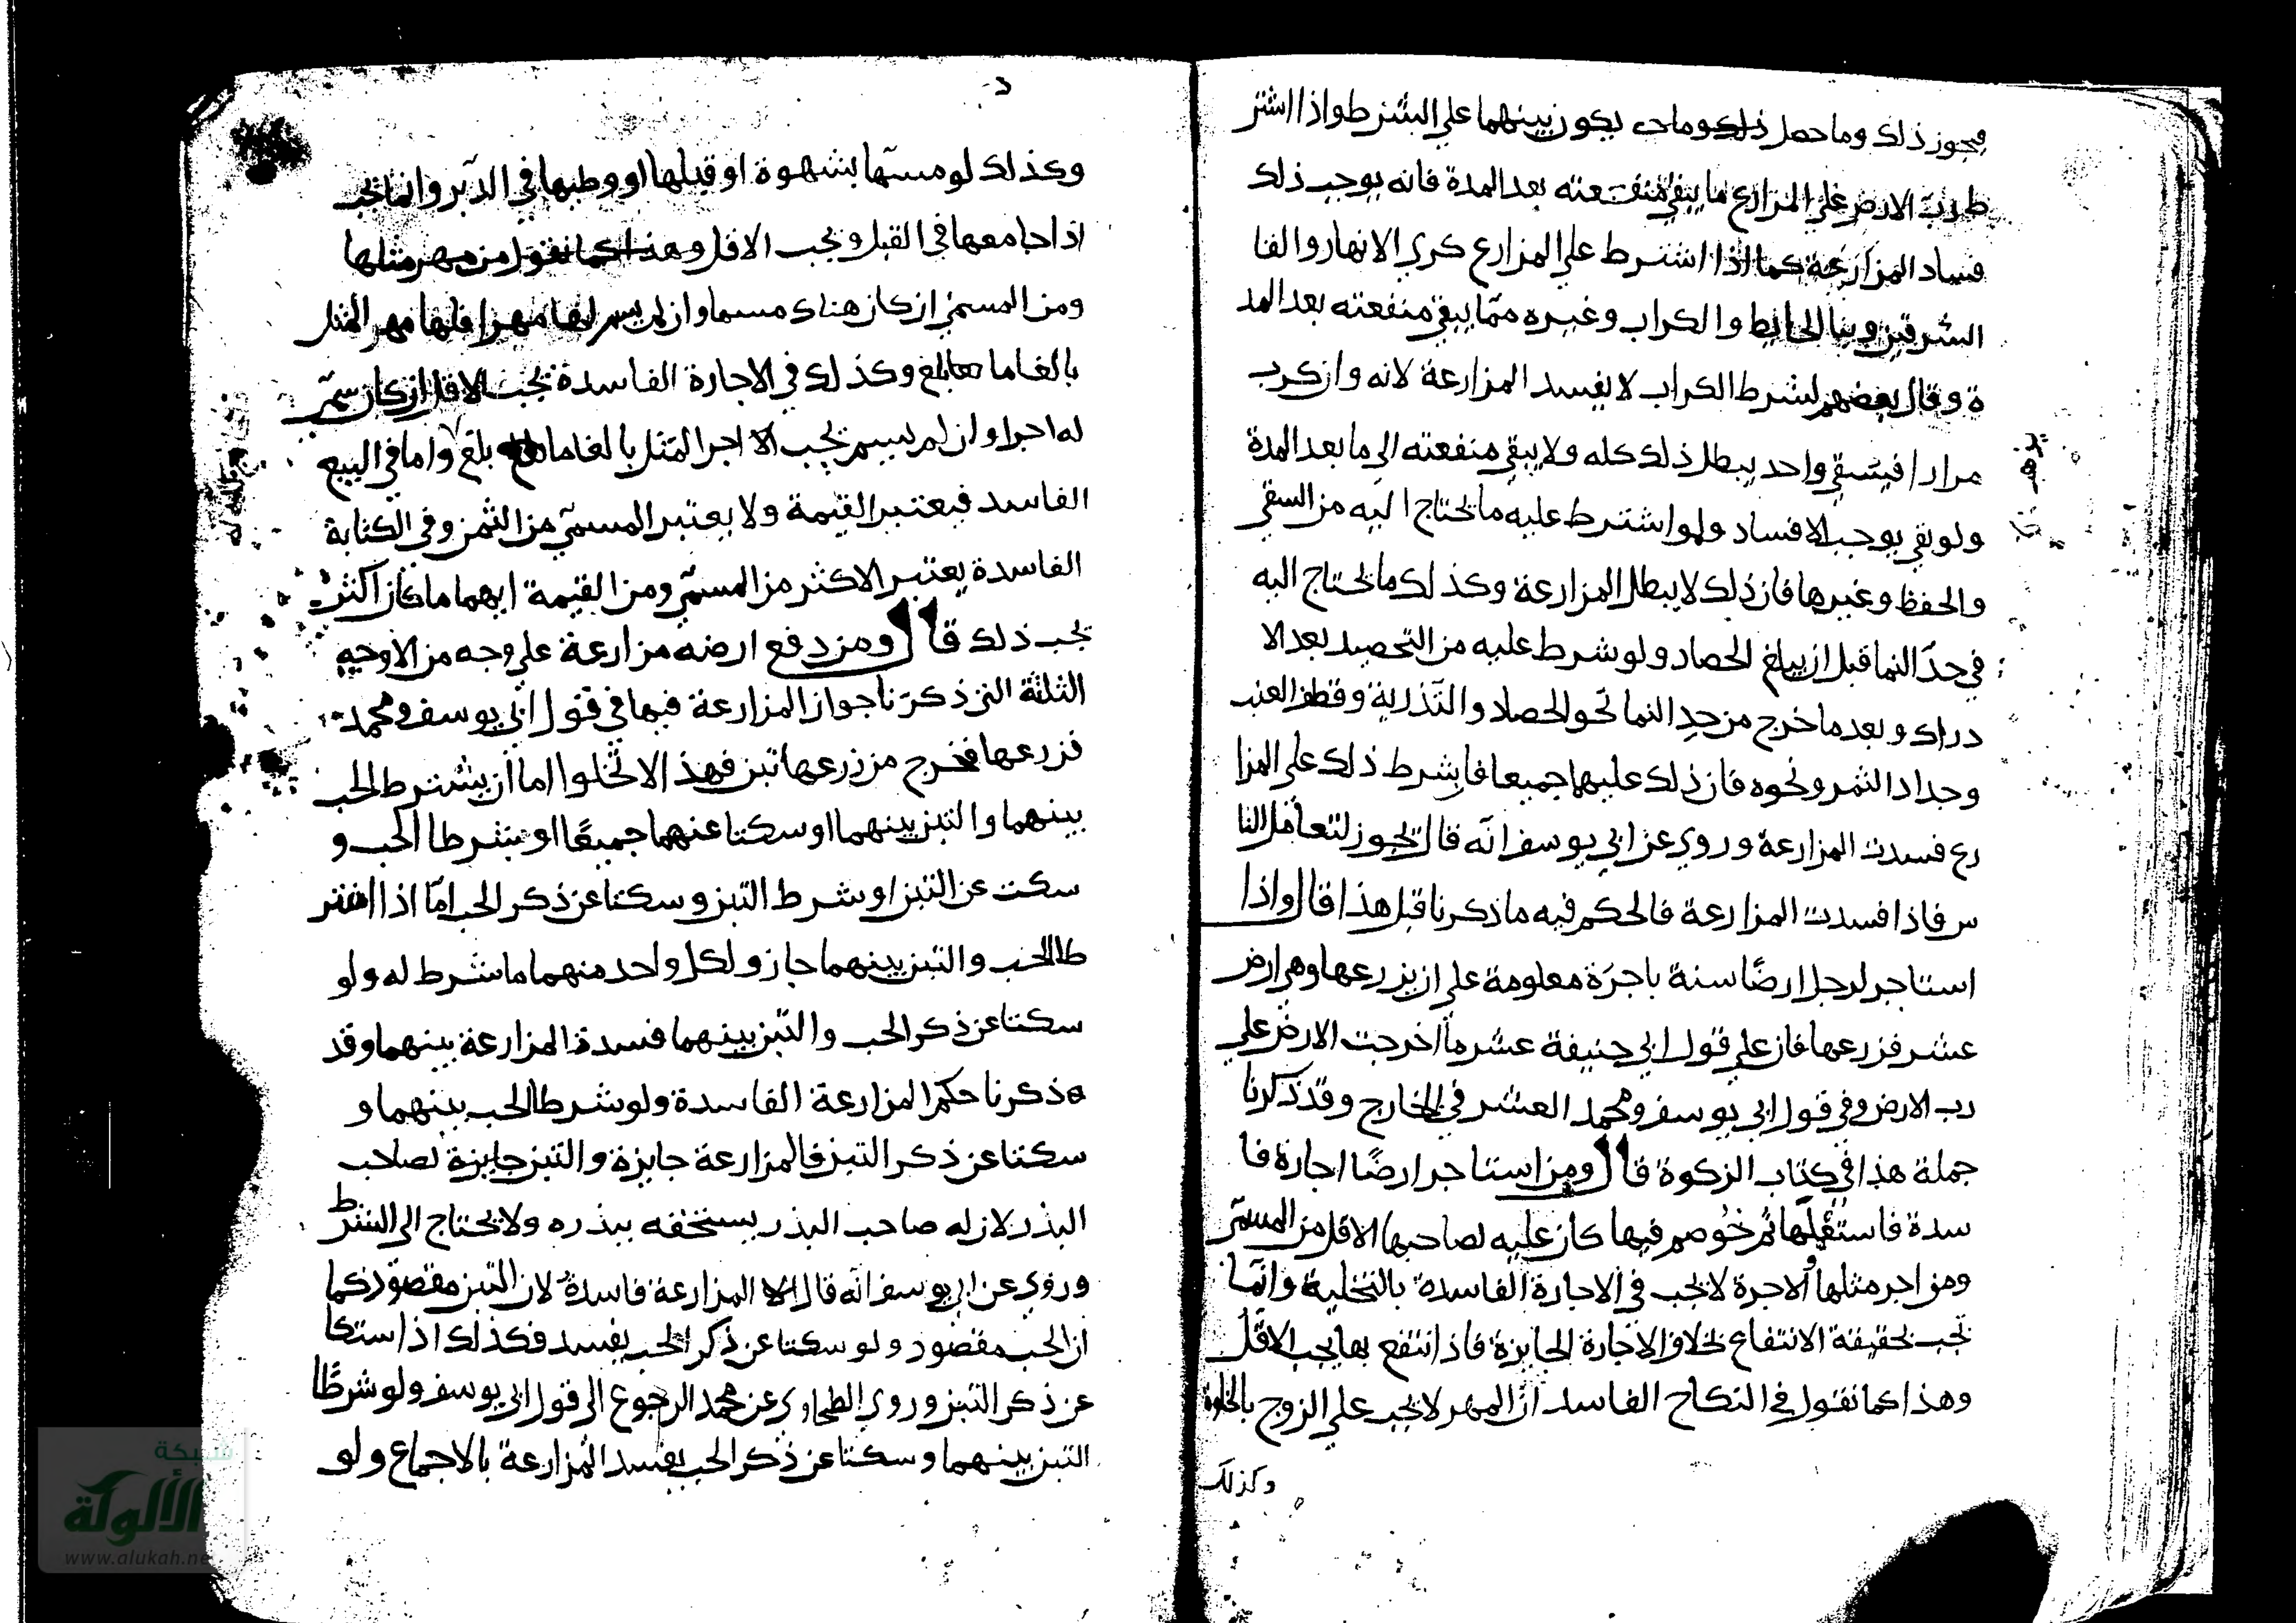 فيجوز ذلك وما حصل يكون بينهما على الشرط واذا اشتر
ط رب الارض على المزارع ما يبقى منفعته بعد المدة فانه يوجب ذلك
فساد المزارعة كما اذا اشترط على المزارع كري الانهار والقا
السرقين وبنا الحايط والكراب وغيره مما يبقى منفعته بعد المد
ة وقال بعضهم لشرط الكراب لا يفسد المزارعة لانه وان كرب
مرارا فيسقي واحد يبطل ذلك كله ولا يبقى منفعته الى ما بعد المدة
ولو بقي يوجب الافساد ولو اشترط عليه ما يحتاج اليه من السقي
والحفظ وغيرها فان ذلك لا يبطل المزارعة وكذلك ما يحتاج اليه
في حد النما قبل ان يبلغ الحصاد ولو شرط عليه من التحصيد بعد الا
دراك وبعد ما خرج من حد النما نحو الحصاد والتذرية وقطف العنب
وجداد الثمر ونحوه فان ذلك عليهما جميعا فان شرط ذلك على المزا
رع فسدت المزارعة وروي عن ابي يوسف انه قال يجوز لتعامل النا
س فاذا فسدت المزارعة فالحكم فيه ما ذكرنا قبل هذا قال واذا
استاجر لرجل ارضا سنة باجرة معلومة على ان يزرعها وهي ارض
عشر فزرعها فان على قول ابي حنيفة عشر ما اخرجت الارض على
رب الارض وفي قول ابي يوسف ومحمد العشر في الخارج وقد ذكرنا
جملة هذا في كتاب الزكوة قال ومن استاجر ارضا اجارة فا
سدة فاستغلها ثم خوصم فيها كان عليه لصاحبها الاقل من المسمى
ومن اجر مثلها والاجرة لا يجب في الاجارة الفاسدة بالتخلية وانما
تجب بحقيقة الانتفاع بخلاف الاجارة الجايزة فاذا انتفع بها يجب الاقل
وهذا كما نقول في النكاح الفاسد ان المهر لا يجب على الزوج بالخلوة
وكذلك
وكذلك لو مسها بشهوة او قبلها او وطيها في الدبر وانما يجب
اذا جامعها في القبل ويجب الاقل من مهر مثلها
ومن المسمى ان كان هناك مسما وان لم يسم لها مهرا فلها مهر المثل
بالغا ما بلغ وكذلك في الاجارة الفاسدة يجب الاقل ان كان سمى
له اجرا وان لم يسم يجب اجر المثل بالغا ما بلغ واما في البيع
الفاسد فيعتبر القيمة ولا يعتبر المسمى من الثمن وفي الكتابة
الفاسدة يعتبر الاكثر من المسمى ومن القيمة ايهما ما كان اكثر
يجب ذلك قال ومن دفع ارضه مزارعة على وجه من الاوجه
الثلثة التي ذكرنا جواز المزارعة فيها في قول ابي يوسف ومحمد
فزرعها فخرج من زرعها تبن فهذا لا تخلوا اما ان يشترط الحب
بينهما والتبن بينهما او سكتا عنهما جميعا او يشرطا الحب و
سكت عن التبن او شرط التبن وسكتا عن ذكر الحب اما اذا اشتر
طا الحب والتبن بينهما جاز ولكل واحد منهما ما شرط له ولو
سكتا عن ذكر الحب والتبن بينهما فسدة المزارعة بينهما وقد
ذكرنا حكم المزارعة الفاسدة ولو شرطا الحب بينهما و
سكتا عن ذكر التبن فالمزارعة جايزة والتبن جايزة لصاحب
البذر لان له صاحب البذر يستحقه ببذره ولا يحتاج الى الشرط
وروي عن ابي يوسف انه قال المزارعة فاسدة لان التبن مقصود كما
ان الحب مقصود ولو سكتا عن ذكر الحب يفسد فكذلك اذا ستكا
عن ذكر التبن وروي الطحاوي عن محمد الرجوع الى قول ابي يوسف ولو شرطا
التبن بينهما وسكتا عن ذكر الحب يفسد المزارعة بالاجماع ولو
شبكة
الألوكة
www.alukah.ne